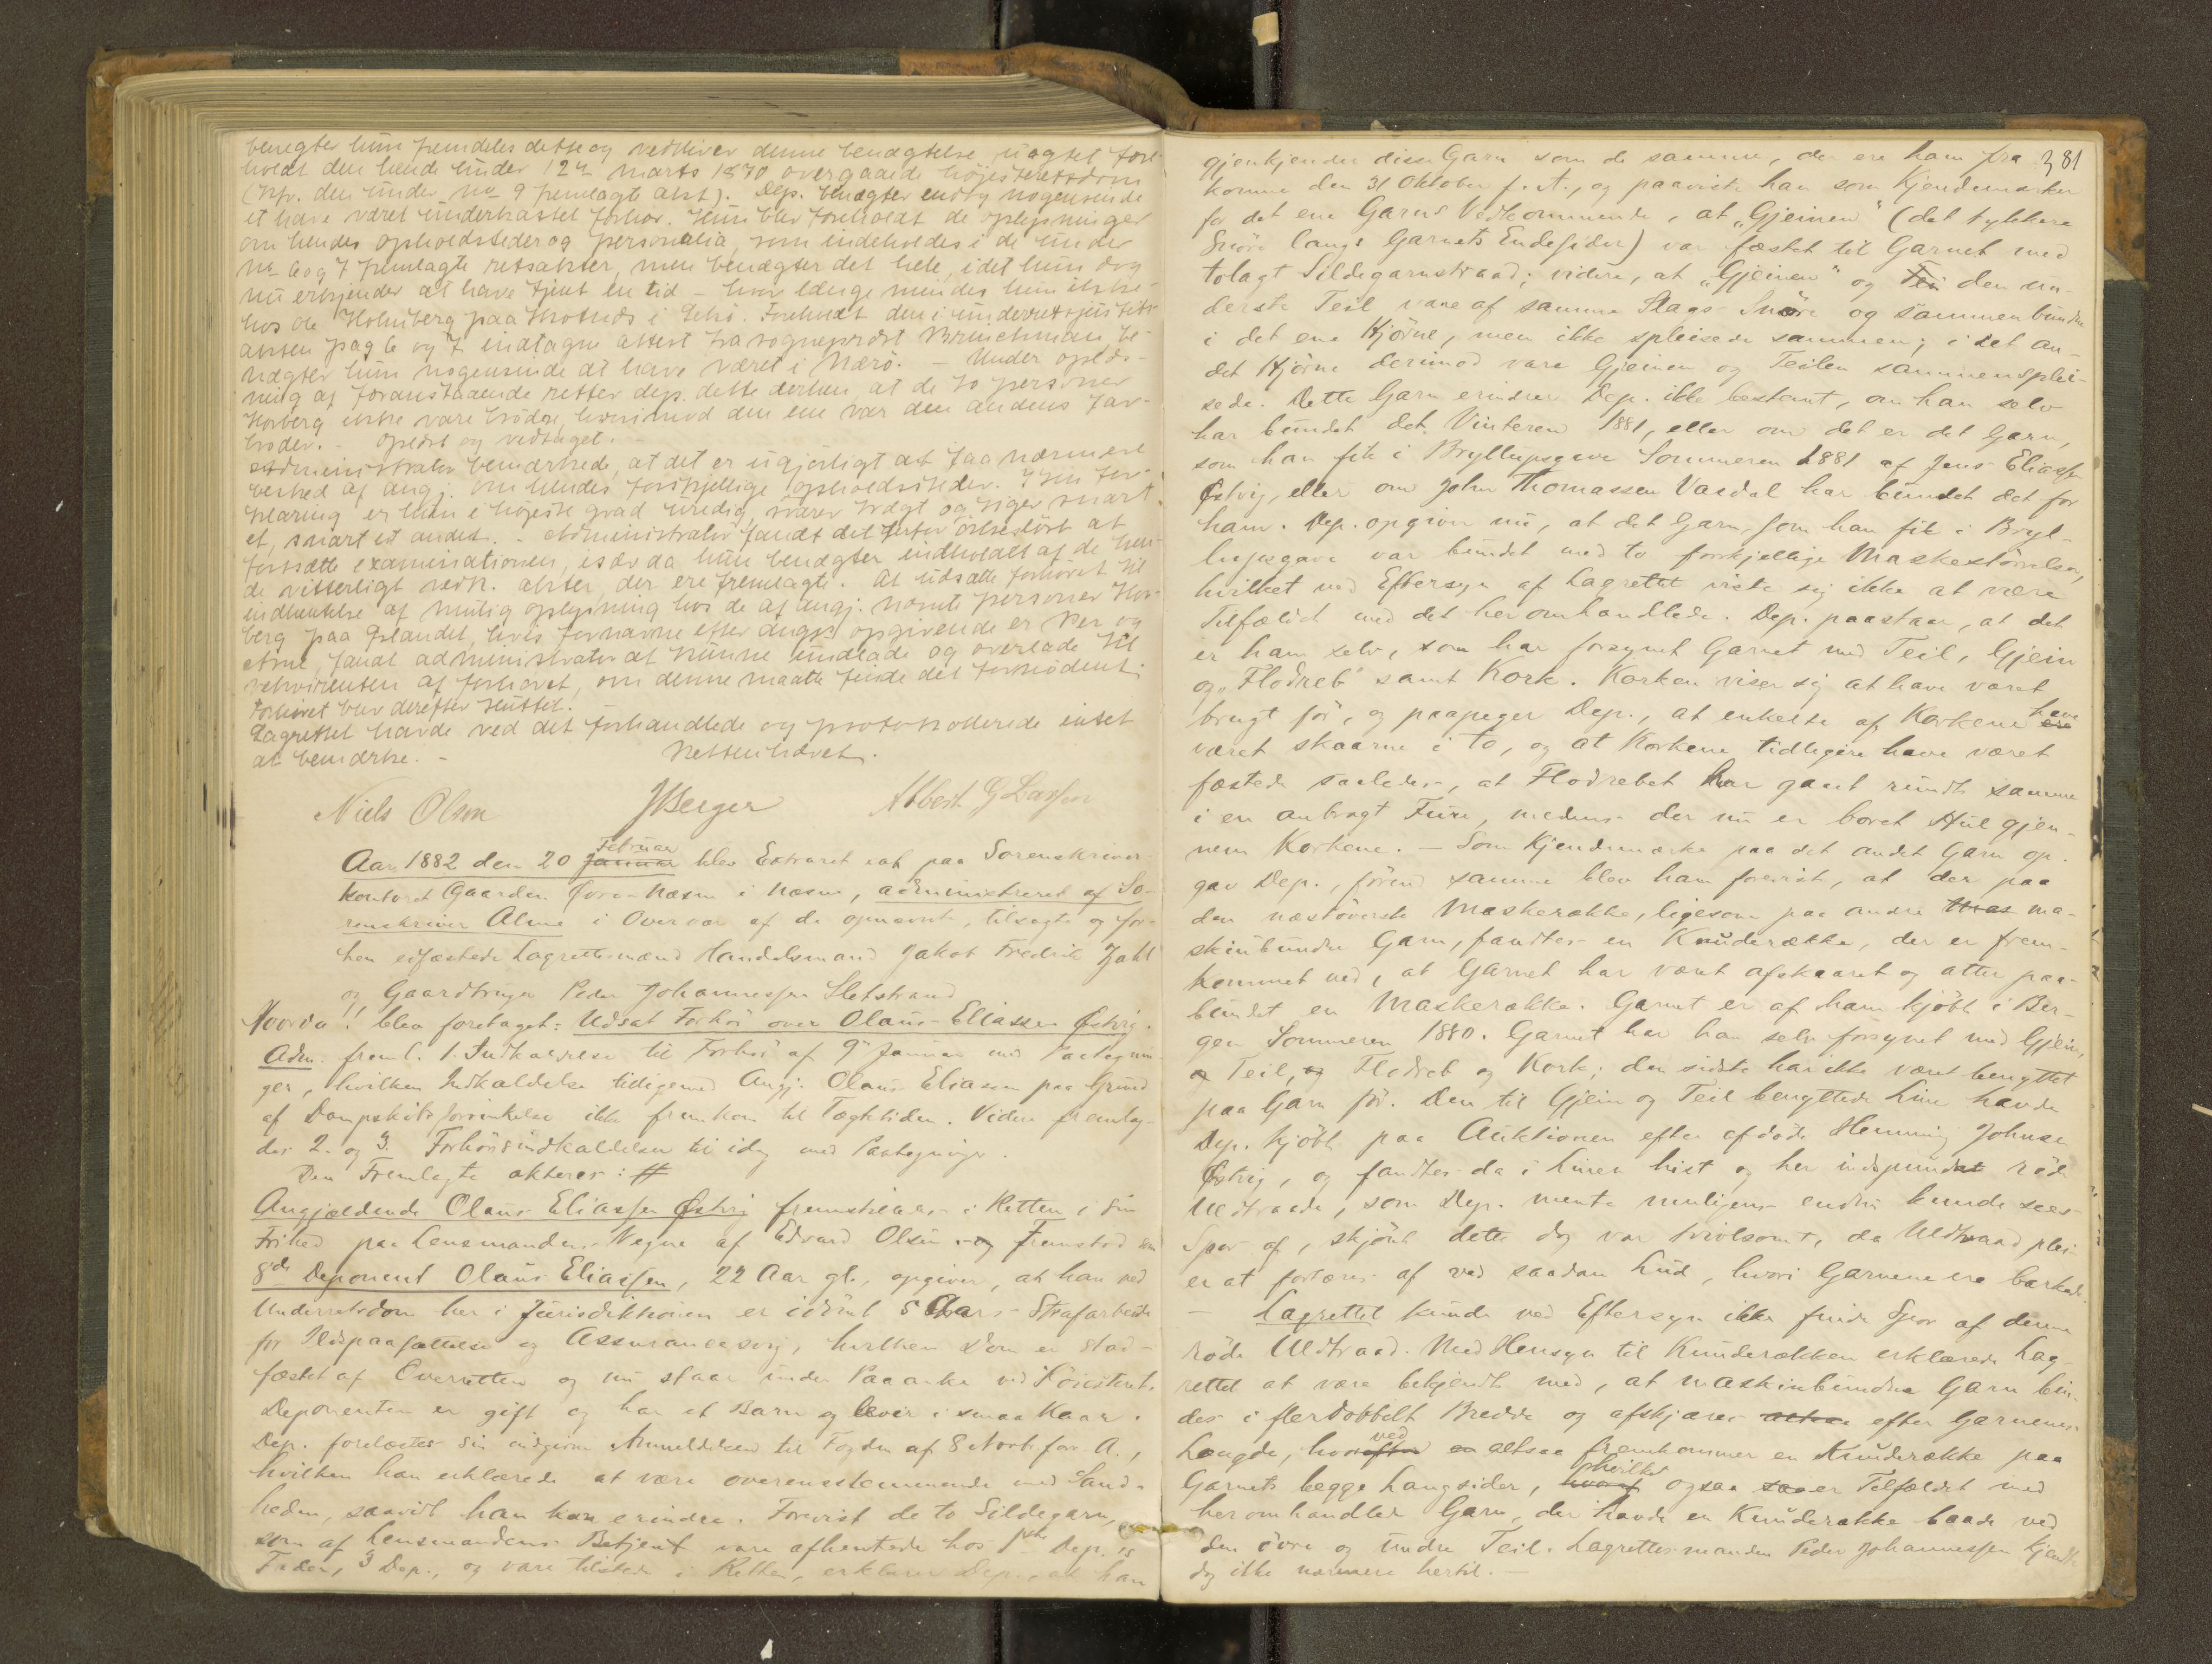 benegter hun fremdeles dette og vedbliver denne benægtelse, uagtet fore-
holdt den hende under 12te marts 1870 overgaaede höjesteretsdom
(kfr. den under No 9 fremlagte akt). Dep. benægter endog nogensinde
et have været underkastet forhør. Hun blev foreholdt de oplysninger
om hendes opholdssteder og personalia, som indeholdes i de under
No 6 og 7 fremlagte retsakter, men benægter det hele, idet hun dog
nu erkjender at have tjent en tid - hvor længe mindes hun ikke -
hos de Holmberg paa i Lekö. Foreholdt den i underretsjustits-
akten pag 6 og 7 indtagne attest fra sogneprest Brinchman be-
nægter hun nogensinde at have været i Nærö. - Under oplæs-
ning af foranstaaende retter dep. dette derhen, at de to personer
Horberg ikke vare brödre, hvorimod den ene var den andens far-
broder. - Oplæst og vedtaget.
Administrator bemærkede, at det er ugjørligt at faa nærmere
besked af angj. om hendes forskjellige opholdssteder. I sin for-
klaring er hun i højeste grad uredig, svarer vrægt og siger snart
et, snart et andet. - Administrator fandt det derfor örkeslöst at
fortsætte examinationen, især da hun benægter indholdet af de hen-
de vitterligt vedk. akter, der ere fremlagte. At udsætte forhöret til
indhentelse af mulig oplysning hos de af angj. nævnte personer Hor-
berg paa Islandet, hvis fornavne efter angjs opgivende er Per og
Arne, fandt administrator at kunne undlade og overlade til
rekvirenten af forhöret, om denne maatte finde det fornödent.
Forhöret blev derefter sluttet.
Lagrettet havde ved det forhandlede og protokollerede intet
at bemærke. - Retten hævet.
Niels Olsen JBerger Albert G Larsen
Februar
Aar 1882 den 20 Januar blev Extraret sat paa Sorenskriver-
kontoret Gaarden fore-Næsne i Næsne, administreret af So-
renskriver Alme i Overvær af de opnævnte, tilsagte og for-
hen edfæstede Lagrettesmænd Handelsmand Jakob Fredrik Zahl
og Gaardbruger Peder Johannessen Sletstrand
Hvorda!! blev foretaget: Udsat Forhör over Olaus Eliassen Østvig.
Adm. freml. 1. Indkaldelse til Forhör af 9de Januar med Paategnin-
ger, hvilken Indkaldelse tilligemed Angj. Olaus Eliassen paa Grund
af Dampskibsforsinkelse ikke fremkom til Tægtstiden. Videre fremlag-
des 2. og 3. Forhörsindkaldelser til idag med Paategninger.
Den Fremlagte akteres: #
Angjældende Olaus Eliassen Østvig fremstilledes i Retten i sin
Frihed paa Lensmandens Vegne af Edvard Olsen og fremstod som
8de Deponent Olaus Eliassen, 22 Aar gl., opgiver, at han ved
Underretsdom her i Jurisdiktionen er idömt 5 Aars Strafarbeide
for Ildspaasættelse og Assurancesvig, hvilken Dom er stad-
fæstet af Overretten og nu staar under Paaanke ved Höiesteret.
Deponenten er gift og har et Barn og lever i smaa Kaar.
Dep. forelæstes sin indgivne Anmeldelse til Fogden af 8 Novb. for. A.,
hvilken han erklærede at være overensstemmende med Sand-
heden, saavidt han kan erindre. Forevist de to Sildegarn,
som af Lensmandens Betjent vare afhentede hos 1ste Dep. 's
Fader, 3 Dep., og vare tilstede i Retten, erklærer Dep., at han
381
gjenkjender disse Garn som de samme, der ere ham fra-
komne den 31 Oktober f. A., og paaviste han som Kjendemærker
for det ene Garns Vedkommende, at „Gjeinen" (det tykkere
Snöre langs Garnets Endesider) var fæstet til Garnet med
tolagt Sildegarnstraad; videre, at „Gjeinen" og Tei den un-
derste Teil vare af samme Slags Snöre og sammenbundne
i det ene Hjörne, men ikke spleisede sammen; i det an-
det Hjörne derimod vare Gjeinen og Teilen sammensplei-
sede. Dette Garn erindrer Dep. ikke bestemt, om han selv
har bundet det Vinteren 1881, eller om det er det Garn,
som han fik i Bryllupsgave Sommeren 1881 af Jens Eliassen
Østvig, eller om John Thomassen Vasdal har bundet det for
ham. Dep. opgiver nu, at det Garn, som han fik i Bryl-
lupsgave var bundet med to forskjellige Maskestörrelser,
hvilket ved Eftersyn af Lagrettet viste sig ikke at være
Tilfældet med det heromhandlede. Dep. paastaar, at det
er ham selv, som har forsynet Garnet med Teil, Gjein
og „Flodreb" samt Kork. Korken viser sig at have været
brugt för, og paapeger Dep., at enkelte af Korkene have ere
været skaarne i to, og at Korkene tidligere have været
fæstede saaledes, at Flodrebet har gaaet rundt samme
i en anbragt Fure, medens der nu er boret Hul gjen-
nem Korkene. - Som Kjendemærke paa det andet Garn op-
gav Dep., förend samme blev ham forevist, at der paa
den næstöverste Maskerække, ligesom paa andre mas ma-
skinbundne Garn, fandtes en Knuderække, der er frem-
kommet ved, at Garnet har været afskaaret og atter paa-
bundet en Maskerække. Garnet er af ham kjöbt i Ber-
gen Sommeren 1880. Garnet har han selv forsynet med Gjein,
og Teil, og Flodreb og Kork; den sidste har ikke været benyttet
paa Garn för. Den til Gjein og Teil benyttede Line havde
Dep. kjöbt paa Auktionen efter afdöde Henning Johnsen
Østvig, og fandtes da i Linen hist og her indspundet röd
Uldtraade, som Dep. mente muligens endnu kunde sees
Spor af, skjönt dette dog var tvivlsomt, da Uldtraad plei-
er at fortæres af ved saadan Lud, hvori Garnene ere barkede.
- Lagrettet kunde ved Eftersyn ikke finde Spor af denne
röde Uldtraad. Med Hensyn til Knuderækken erklærede Lag-
rettet at være bekjendt med, at maskinbundne Garn bin-
des i flerdobbelt Bredde og afskjæres efter Garnenes
Længde, hvorefter ved altsaa fremkommer en Knuderække paa
Garnets begge Langsider, hvilket ogsaa er Tilfældet med
heromhandlede Garn, der havde en Knuderække baade ved
den övre og undre Teil. Lagrettesmanden Peder Johannessen kjendte
dog ikke nærmere hertil. -